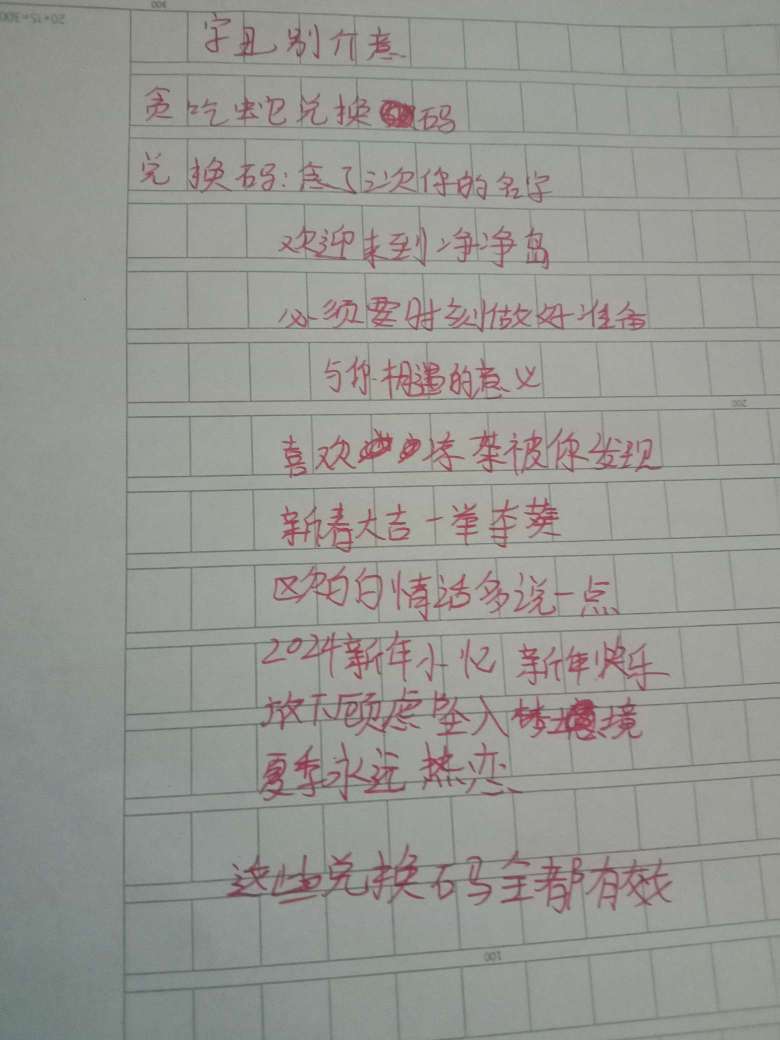 字丑别介意
贪吃蛇兑换码
兑换码:念了三次你的名字
欢迎来到净净岛
必须要时刻做好准备
与你相遇的意义
喜欢冻荣被你发现
新春大吉一举夺葵
区欠白白情话多说一点
2024新年小忆 新年快乐
放下顾虑坠入梦境
夏季永远热恋
这些兑换码全都有效
20×15=300
300
200
100